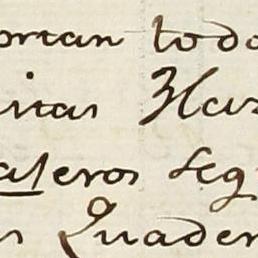 ortan todo
itas Haz
ateros seg
s Quader